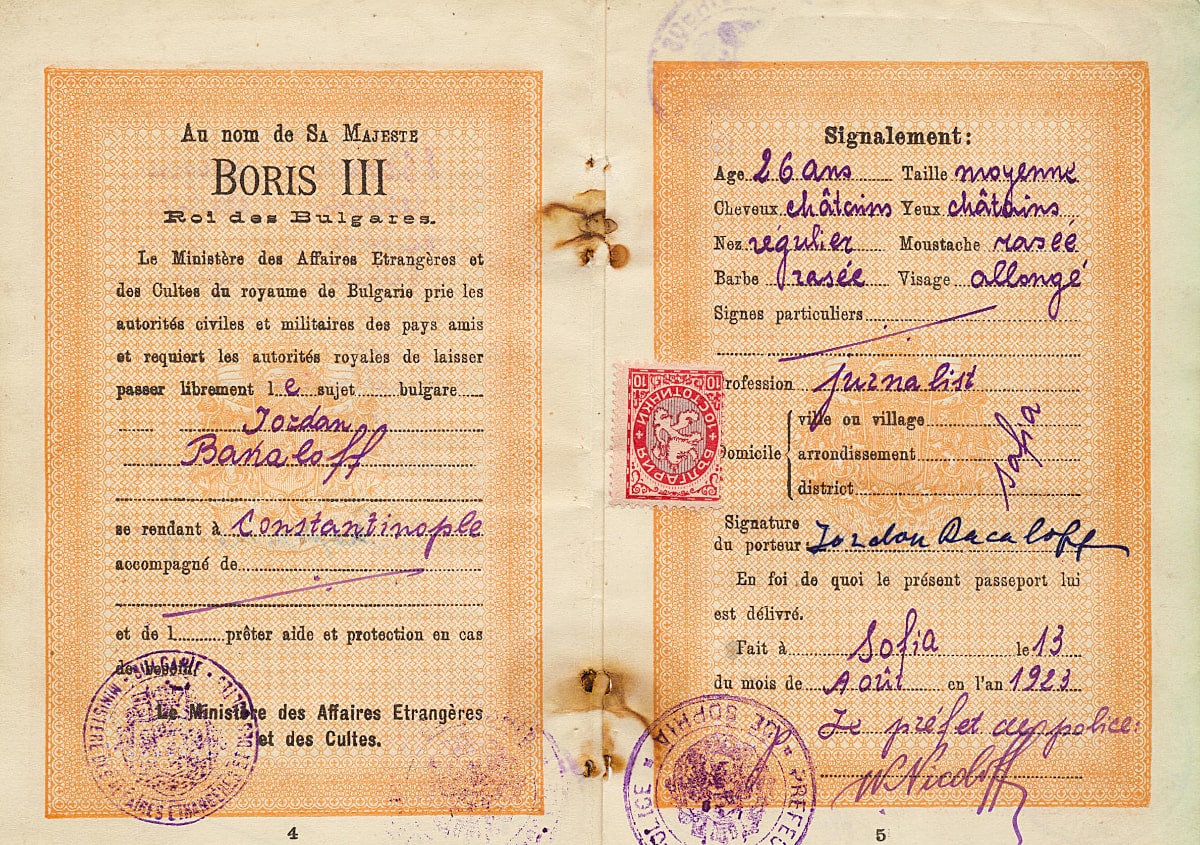 Au nom de SA MAJESTE
BORIS III
Roi des Bulgares.
Le Ministère des Affaires Etrangères et
des Cultes du royaume de Bulgarie prie les
autorités civiles et militaires des pays amis
et requiert les autorités royales de laisser
passer librement le sujet bulgare
Jordan
Bakaloff
se rendant à Constantinople
accompagné de
et de l prêter aide et protection en cas
de besoin.
Le Ministère des Affaires Etrangères
et des Cultes.
BULGARIE
MINISTÈRE DES AFFAIRES ETRANGÈRES ET DES CULTES
4
Signalement:
Age 26 ans Taille moyenne
Cheveux châtains Yeux châtains
Nez régulier Moustache rasée
Barbe rasée Visage allongé
Signes particuliers
Profession jurnalist
ville ou village
Domicile arrondissement
district
Sofia
10 СТОТИНКИ 10
БЪЛГАРИЯ
Signature
du porteur: Jordan Bacaloff
En foi de quoi le présent passeport lui
est délivré.
Fait à Sofia le 13
du mois de Août en l'an 1923
Le préfet de police:
W Nicoloff
PREFECTURE POLICE SOPHIA
5